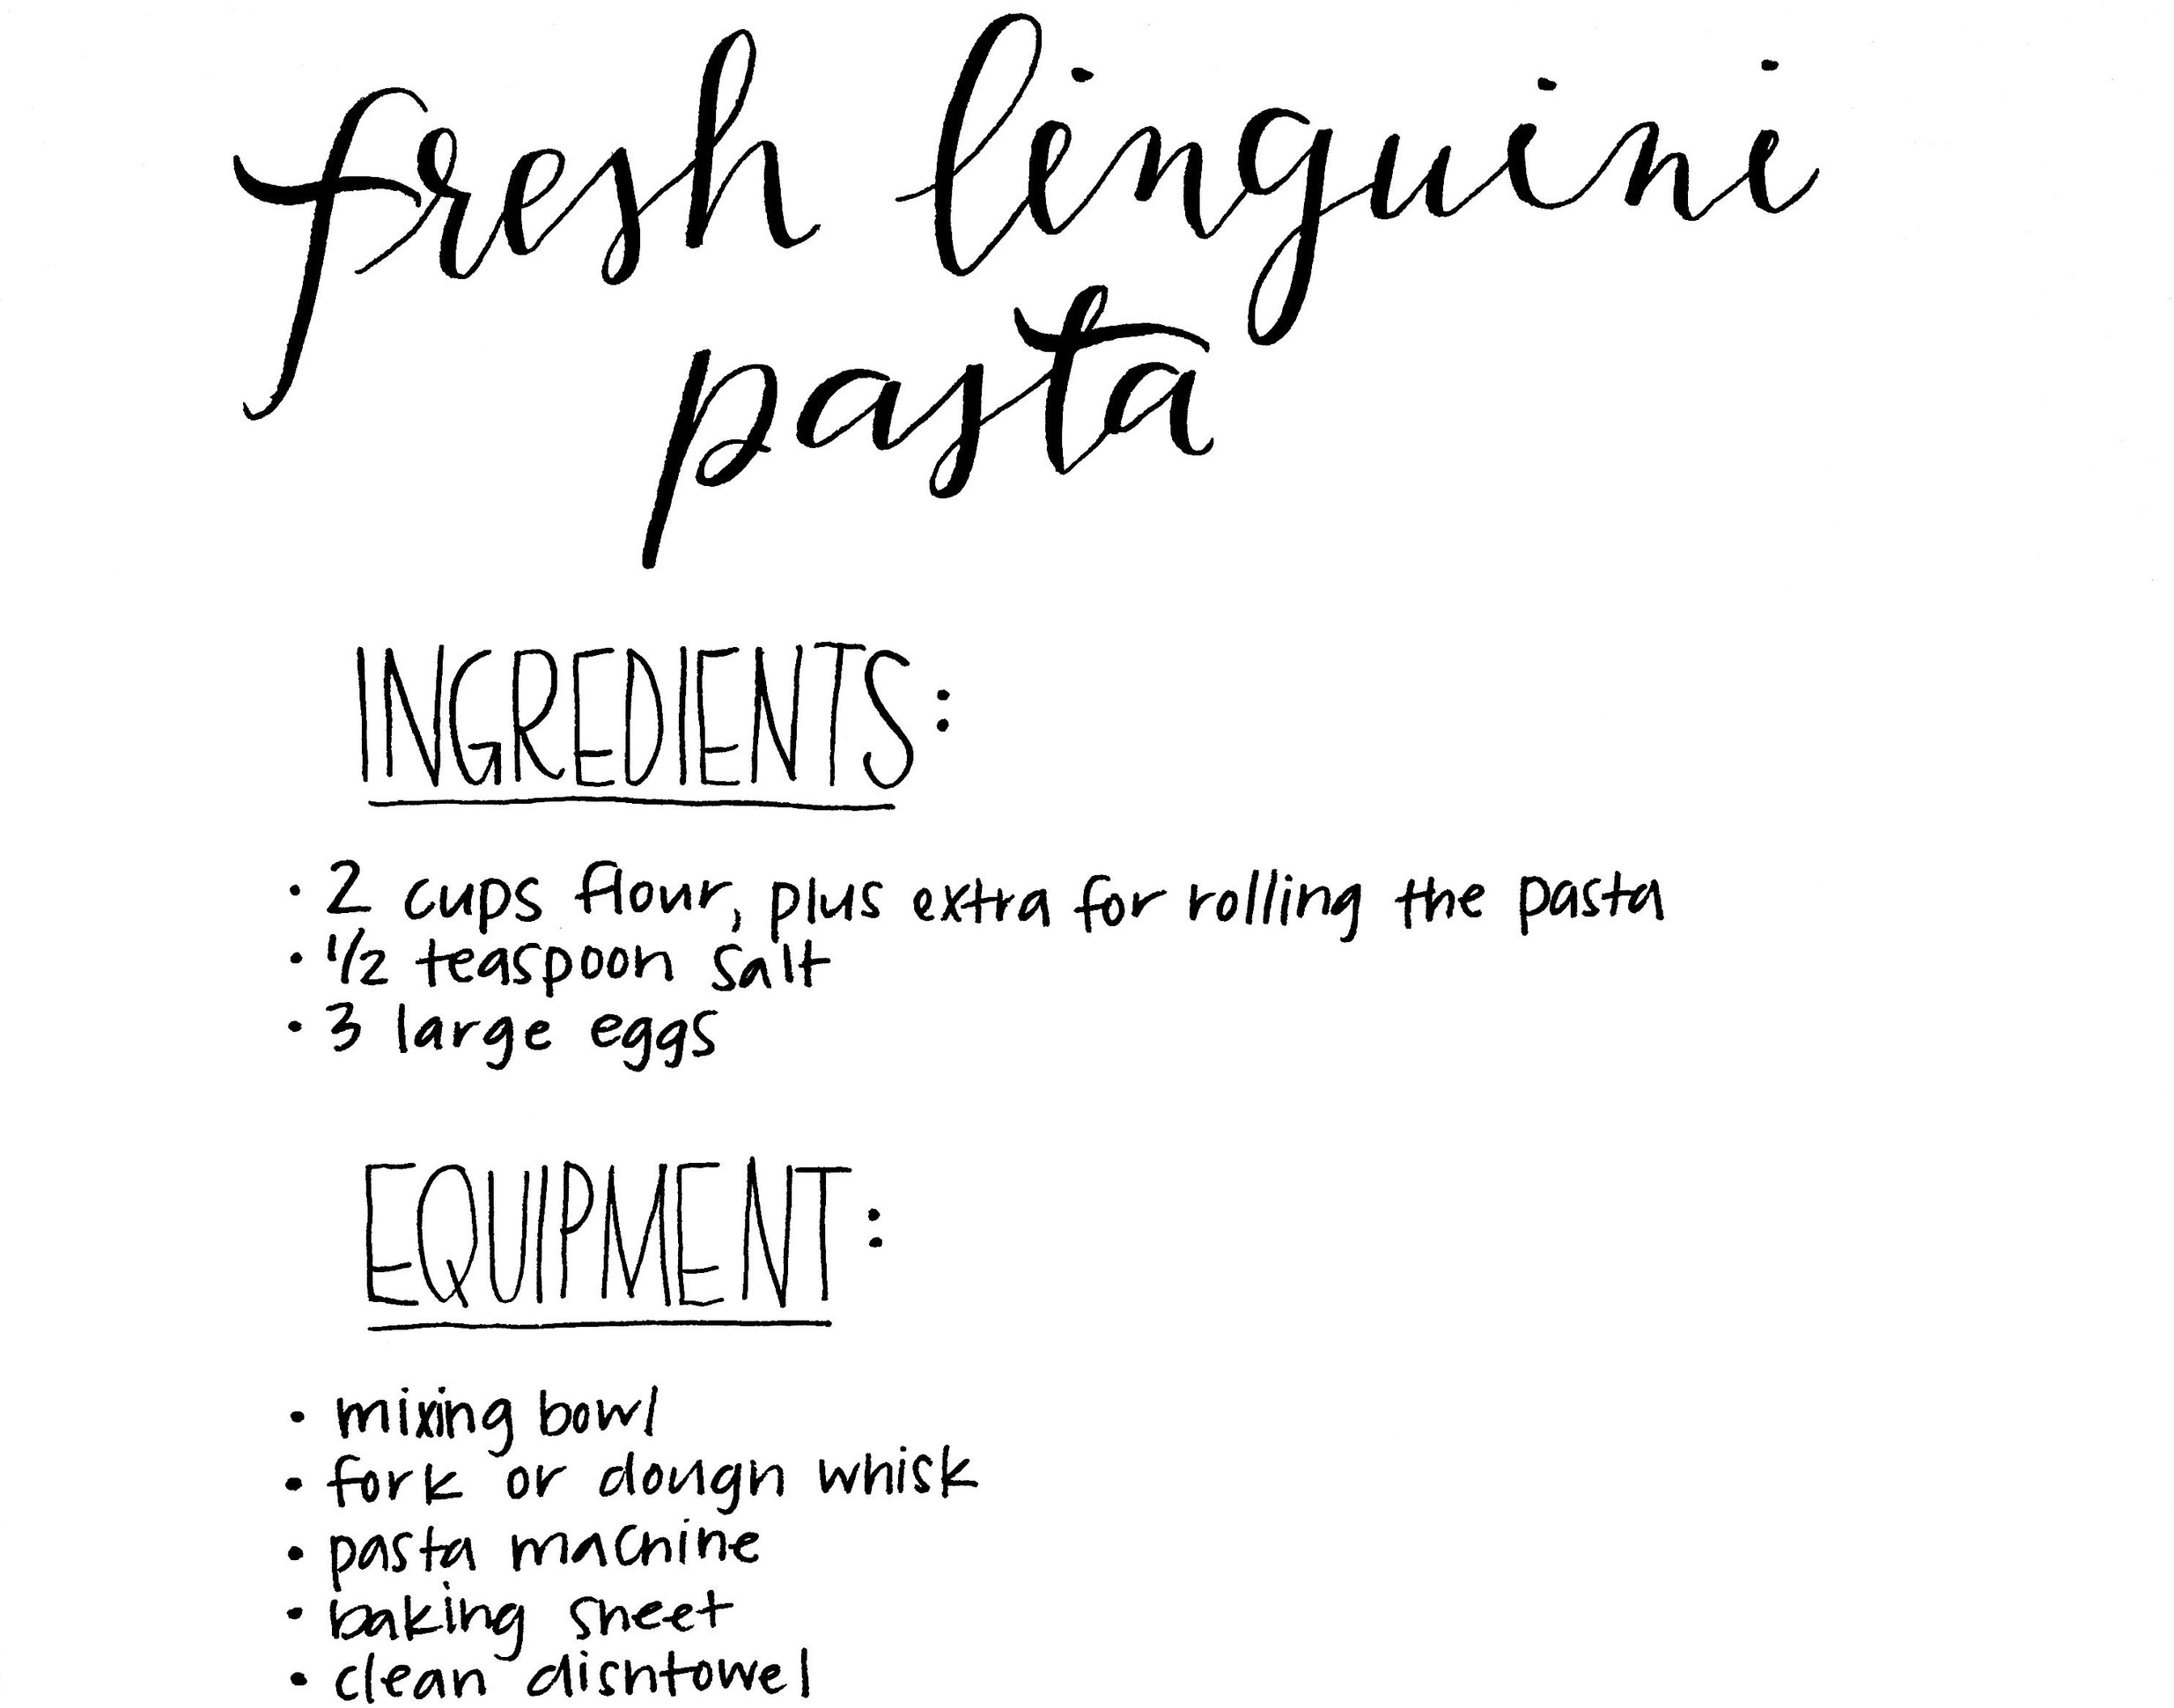 fresh linguini
pasta
INGREDIENTS:
• 2 cups flour, plus extra for rolling the pasta
• 1/2 teaspoon salt
• 3 large eggs
EQUIPMENT:
• mixing bowl
• fork or dough whisk
• pasta machine
• baking sheet
• clean dishtowel